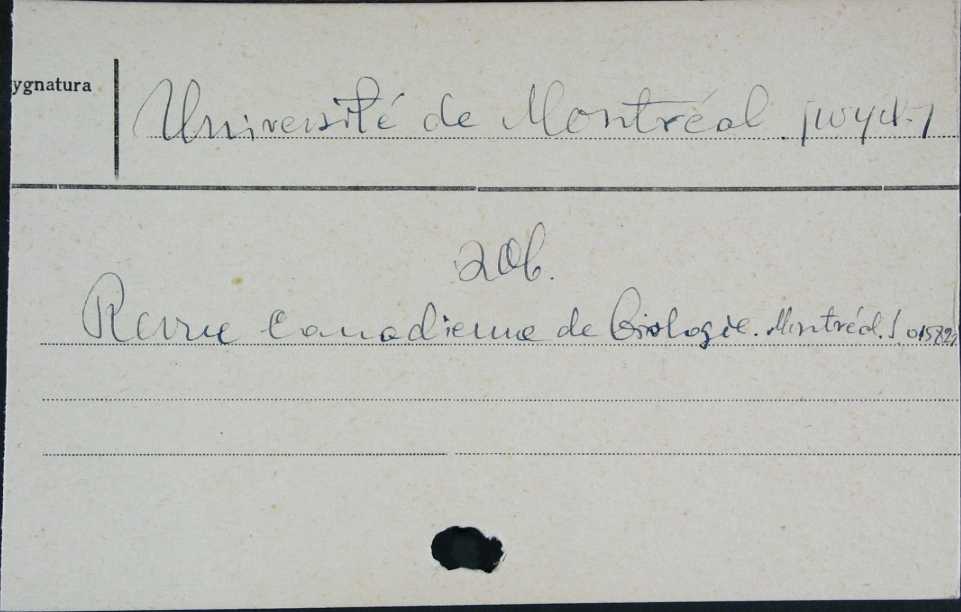 ygnatura
Université de Montréal /wyd./
206.
Revue Canadienne de Biologie. Montréal. S. 01582